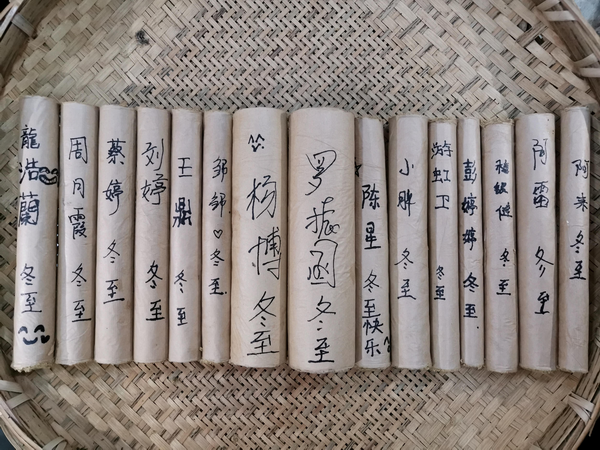 龍浩蘭 冬至
周月霞 冬至
蔡婷 冬至
刘婷 冬至
王鼎 冬至
邹邹♡冬至.
杨博 冬至
罗振函 冬至
陈星 冬至快乐
小胖 冬至
游虹卫 冬至
彭婷婷 冬至.
冬至
阿雷 冬至
阿来 冬至